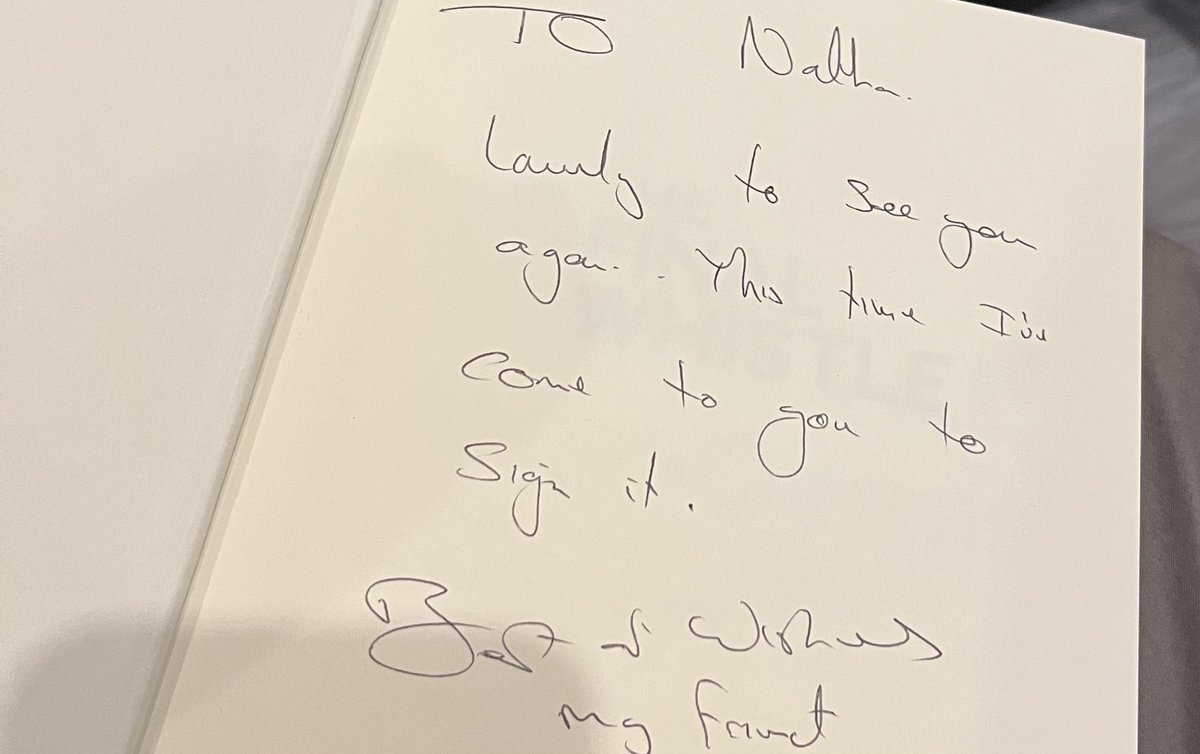 To Nathan.
Lovely to see you
again. This time I've
come to you to
Sign it.
Best of Wishes
my friend